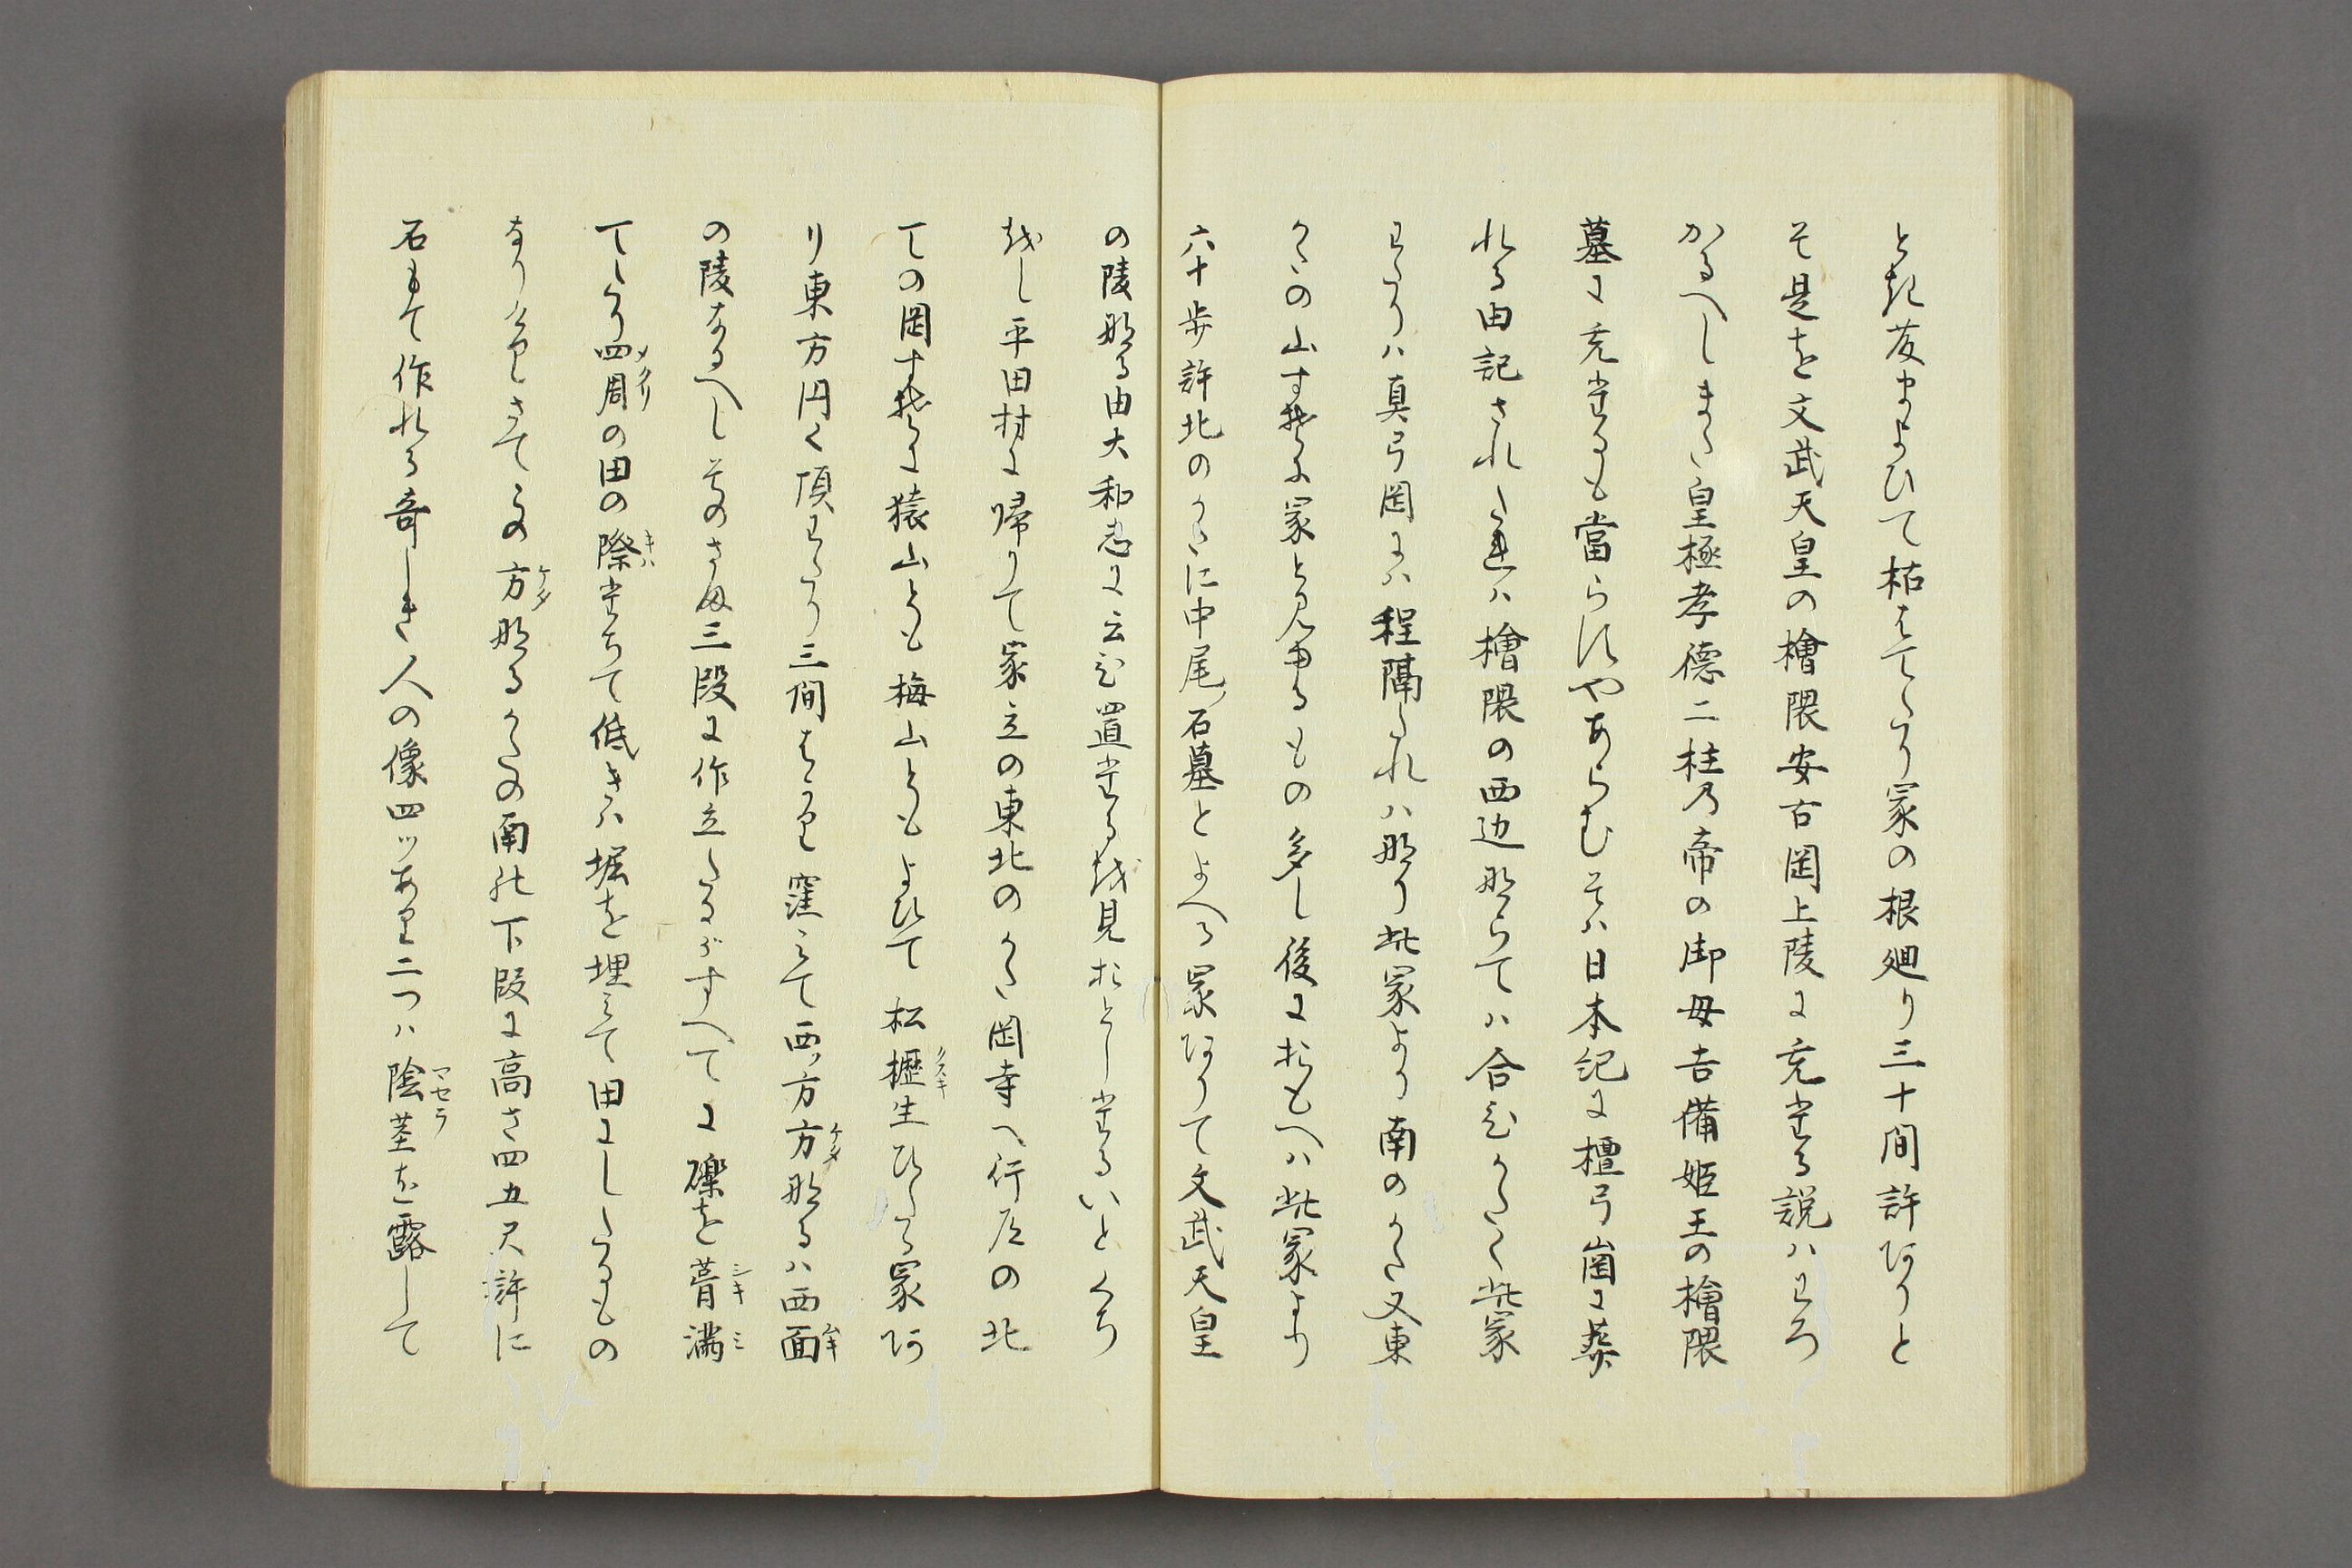 とき茂まよひて枯はてたり冢の根廻り三十間許阿りと
そ是を文武天皇の檜隈安古岡上陵に充たる説ハわろ
かるへしまた皇極孝徳二柱乃帝の御母吉備姫王の檜隈
墓に充たるも當らすやあらむそハ日本紀に檀弓崗に葬
れる由記されたれハ檜隈の西辺ならてハ合ひかたく此冢
わたりハ真弓岡にハ程隔たれハ那り此冢より南のかた又東
かたの山すそに冢と見ゆるもの多し後におもへハ此冢より
六十歩許北のかたに中尾ノ石墓とよへる冢阿りて文武天皇
の陵那る由大和志に云ひ置たる越見おとしたるいとくち
越し平田村に帰りて冢立の東北のかた岡寺へ行道の北
ての岡すそに猿山とも梅山ともよひて松櫪クヌキ生ひたる冢阿
り東方円く頂わたり三間はかり窪ミて西ノ方方ケタ那るハ西面ムキ
の陵なるへし其のさま三段に作立たるがすへてに礫を葺シキ満ミ
てたり四周メクリの田の際キハたちて低きハ堀を埋ミて田にしたるもの
なりけりさてその方ケタ那るかたの南の下段に高さ四五尺許に
石もて作れる奇しき人の像四ツあり二つハ陰茎マセラを露して